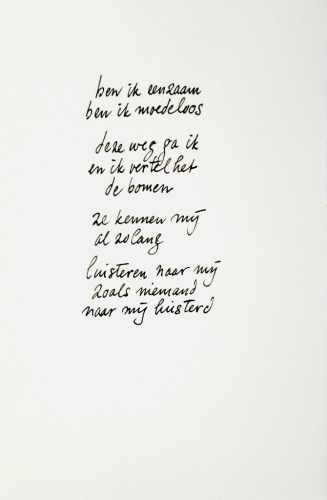 ben ik eenzaam
ben ik moedeloos
deze weg ga ik
en ik vertel het
de bomen
ze kennen mij
al zolang
luisteren naar mij
zoals niemand
naar mij luisterd